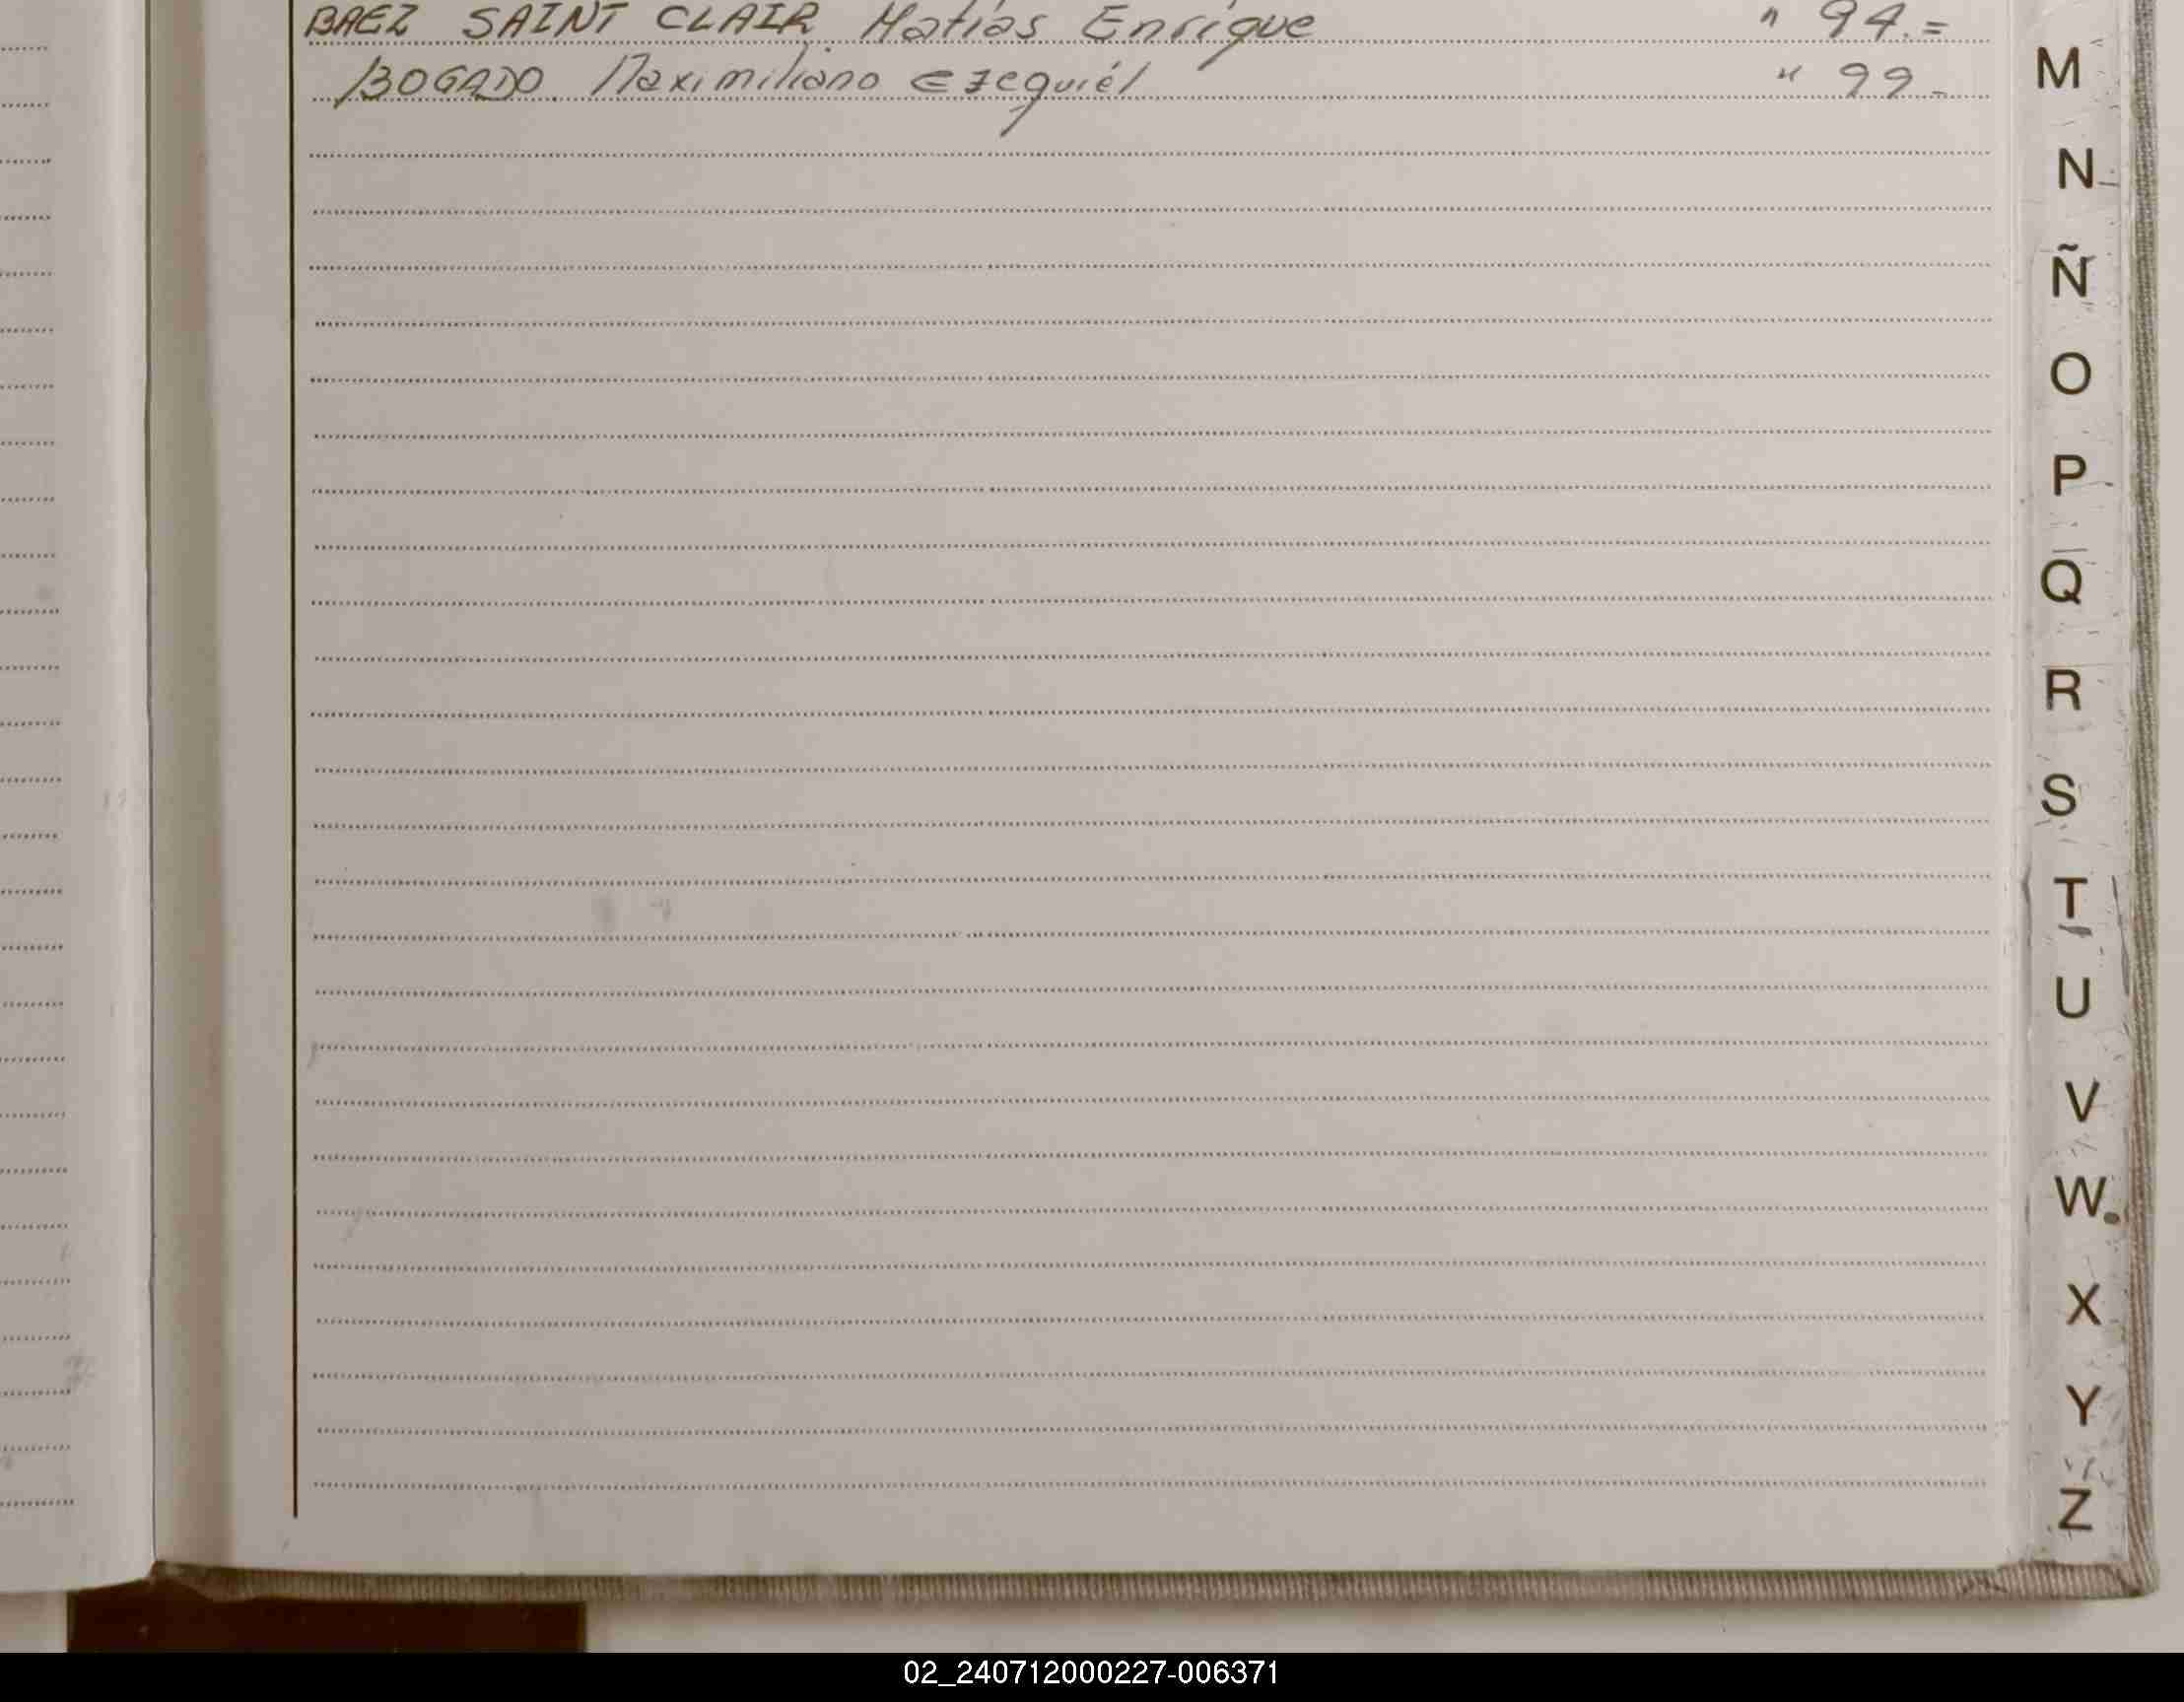 BAEZ SAINT CLAIR Matías Enrique " 94.=
BOGADO Maximiliano Ezequiél " 99-
M
N
Ñ
O
P
Q
R
S
T
U
V
W
X
Y
Z
02_240712000227-006371